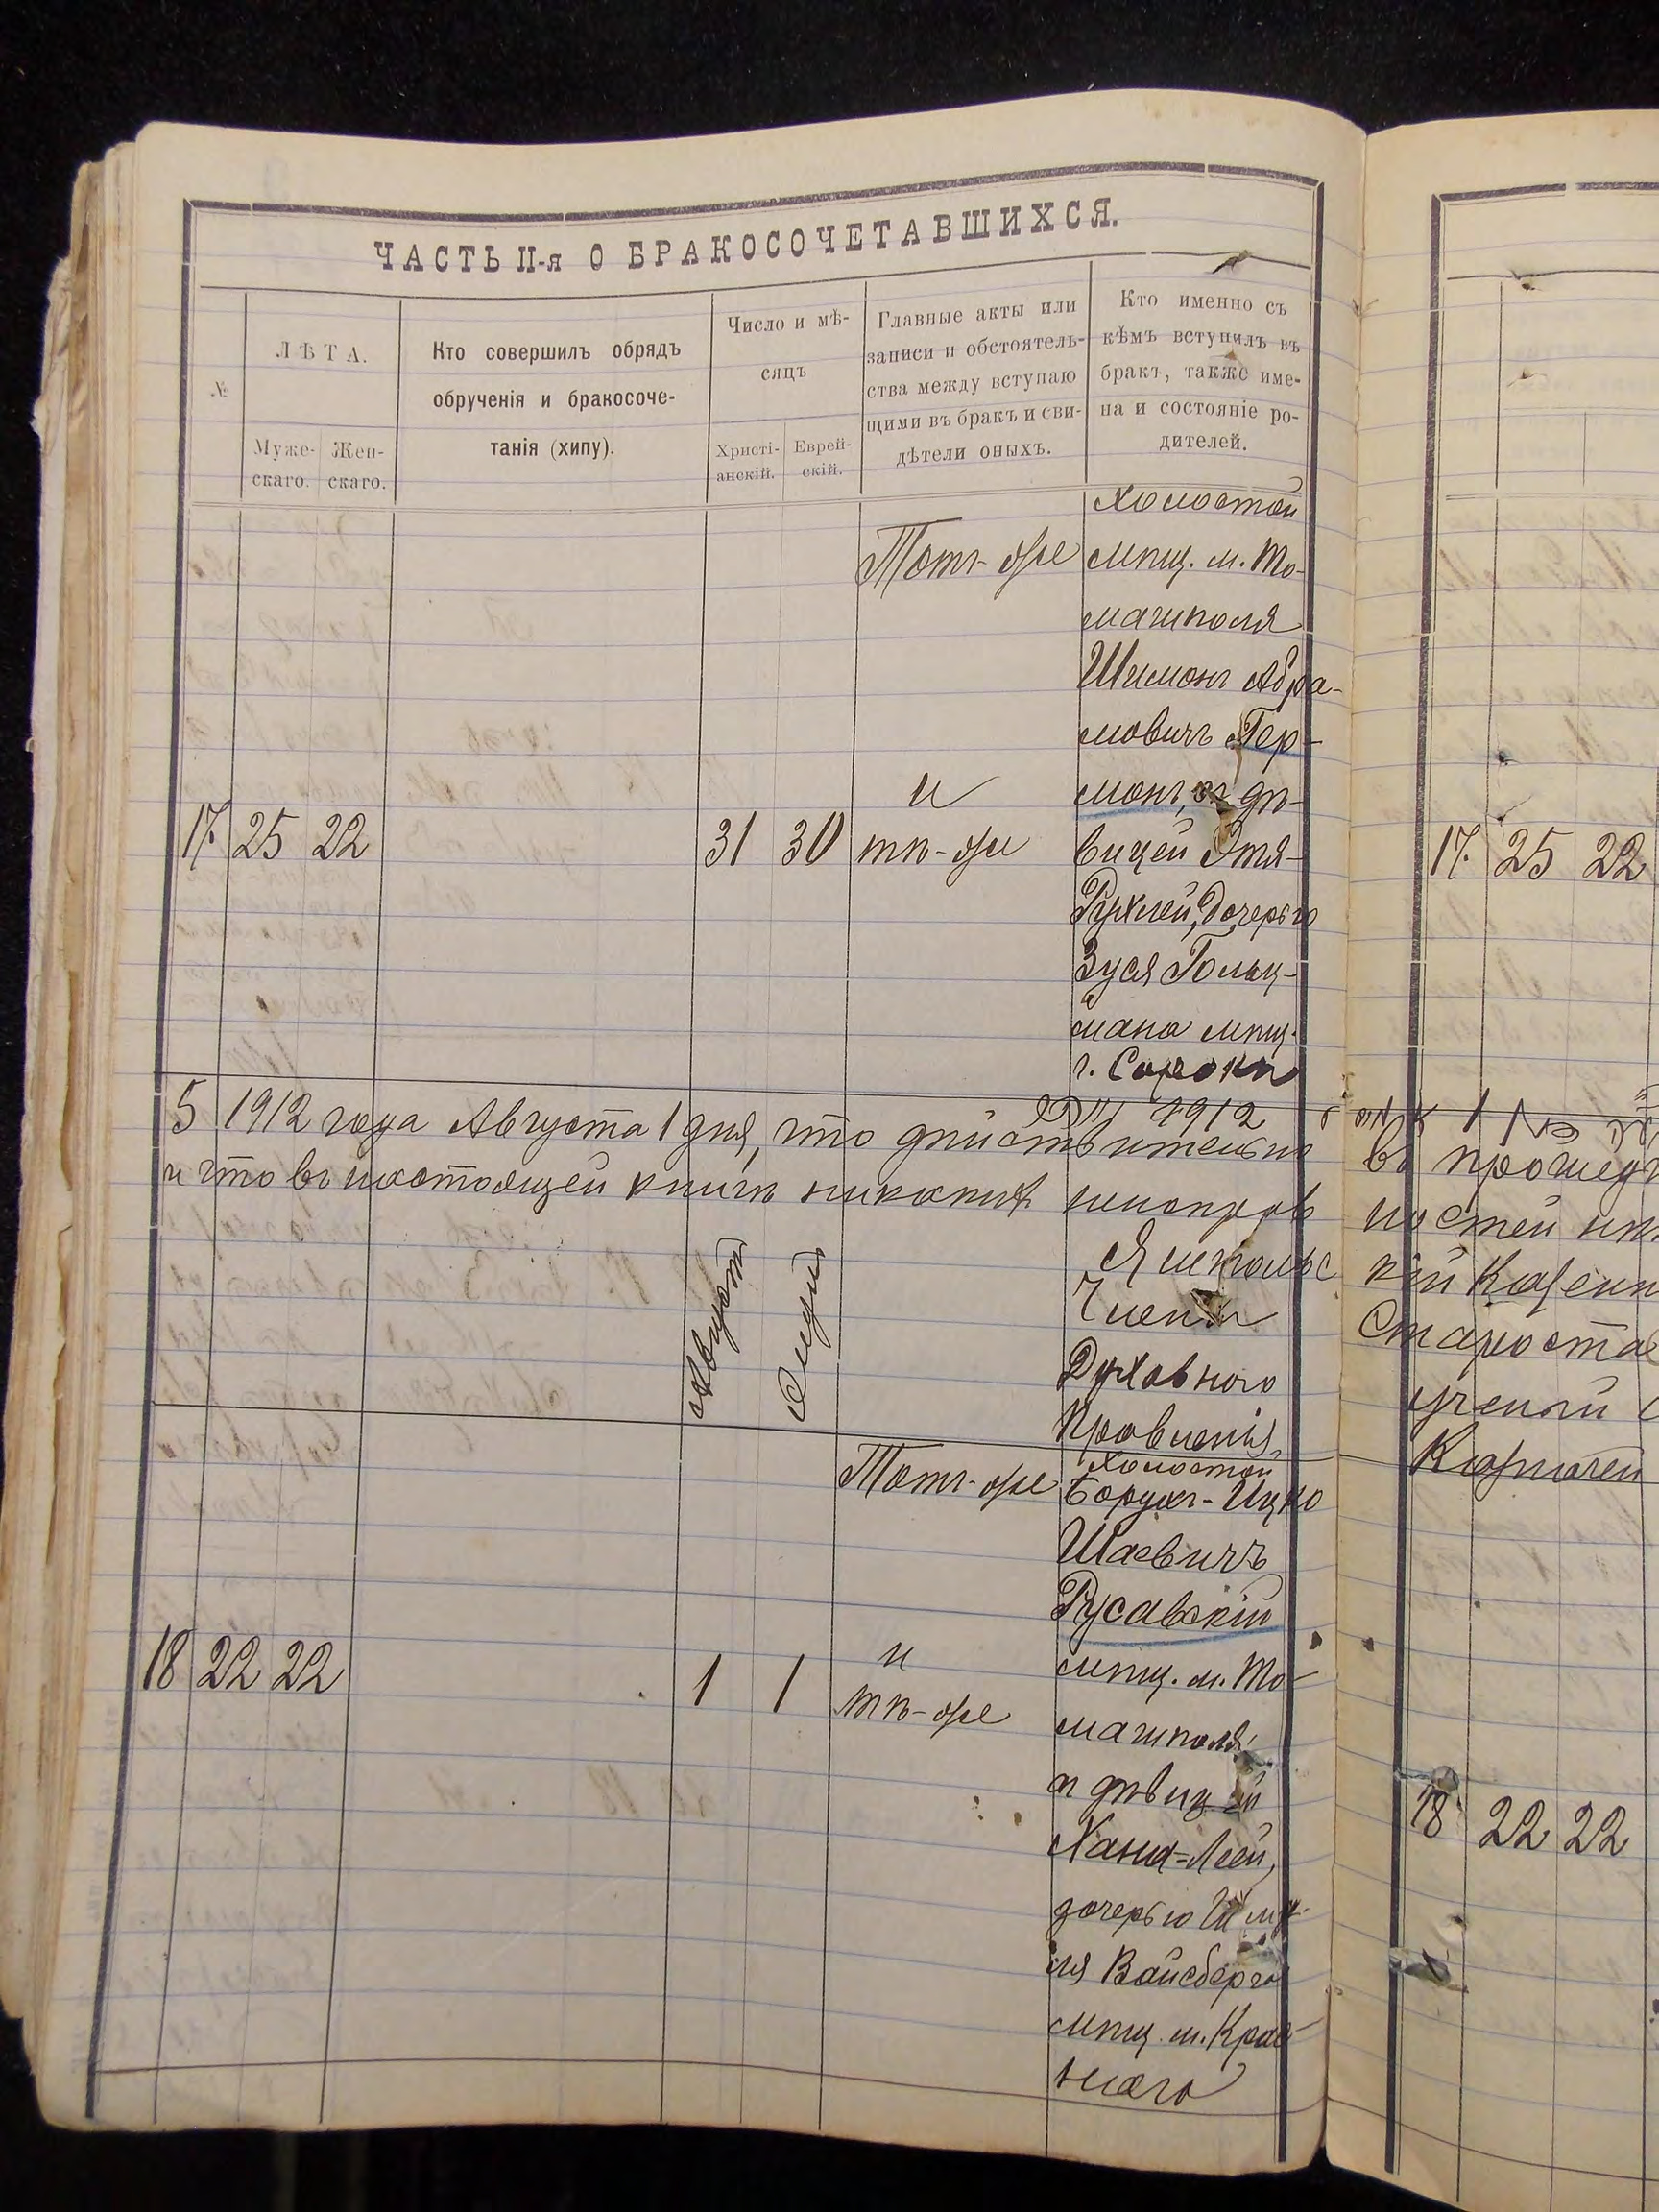 ЧАСТЬ II-я О БРАКОСОЧЕТАВШИХСЯ.
№
ЛѢТА.
Муже-
скаго.
Жен-
скаго.
Кто совершилъ обрядъ
обрученія и бракосоче-
танія (хипу).
Число и мѣ-
сяцъ
Христі-
анскій.
Еврей-
скій.
Главные акты или
записи и обстоятель-
ства между вступаю
щими въ бракъ и сви-
дѣтели оныхъ.
Кто именно съ
кѣмъ вступилъ въ
бракъ, также име-
на и состояніе ро-
дителей.
17. 25 22 31 30
Тотъ-же
и
тѣ-же
холостой
мѣщ. м. То-
машполя
Шимонъ Абра-
мовичъ Гер-
монъ, съ дѣ-
вицей Этя-
Рухлей, дочерью
Зуся Гольц-
мана мѣщ.
г. Сороки
5 1912 года Августа 1 дня, что дѣйствительно
и что въ настоящей книгѣ никакихъ неисправ
Ямпольс
Члены
Духовного
Правленія,
Августъ
18 22 22 1 1
Тотъ-же
и
тѣ-же
холостой
Борухъ-Ицко
Шаевичъ
Русавскій
мѣщ. м. То-
машполя
съ дѣвицей
Хана=Леей,
дочерью Шму-
ля Вайсберга
мѣщ. м. Крас-
наго
17. 25 22
въ прошед
ностей
кій Казенн
Староста
ученый
Казначей
18 22 22